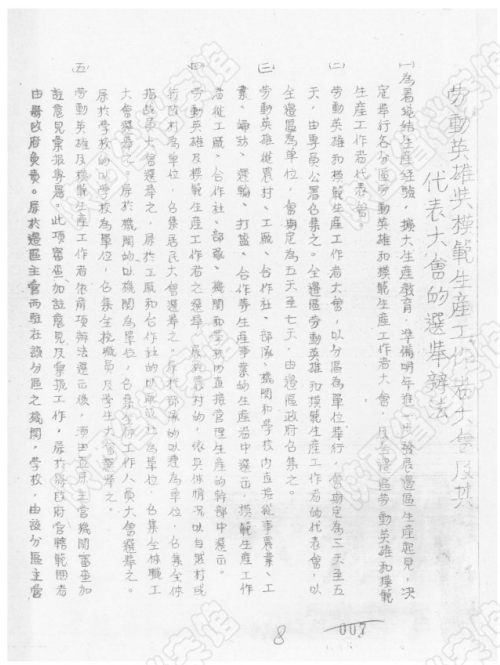 勞動英雄與模範生產工作者大會及其
代表大會的選舉辦法
(一)為着總結生產經驗，擴大生產教育，準備明年進一步發展邊區生產起見，決
定舉行各分區勞動英雄和模範生產工作者大會，及全邊區勞動英雄和模範
生產工作者代表會。
(二)勞動英雄和模範生產工作者大會，以分區為單位舉行，會期定為三天至五
天，由專員公署召集之。全邊區勞動英雄和模範生產工作者的代表會，以
全邊區為單位，會期定為五天至七天，由邊區政府召集之。
(三)勞動英雄從農村、工廠、合作社、部隊、機關和學校內直接從事農業、工
業、紡運輸、打鹽、合作等生產事業的生產者中選出，模範生產工作
者從工廠、合作社、部隊、機關和學校內直接管理生產的幹部中選出。
(四)勞動英雄及模範生產工作者之選舉，屬於農村的，依具体情况以自然村或
行政村為單位，召集居民大會選舉之，屬於部隊的以連為單位，召集全体
指战員大會選舉之，屬於工廠和合作社的以廠或社為單位，召集全体職工
大會選舉之。屬於機關的以機關為單位，召集全体工作人員大會選舉之。
屬於學校的以學校為單位，召集全校職員及學生大會選舉之。
(五)勞動英雄及模範生產工作者依前項辦法選出後，須由直屬主官機關審查加
註意見彙報專署。此項審查加註意見及彙報工作，屬於縣政府管轄範圍者
由縣政府負責。屬於邊區主官而駐在該分區之機關，學校，由該分區主官
8
007
陕西省档案馆